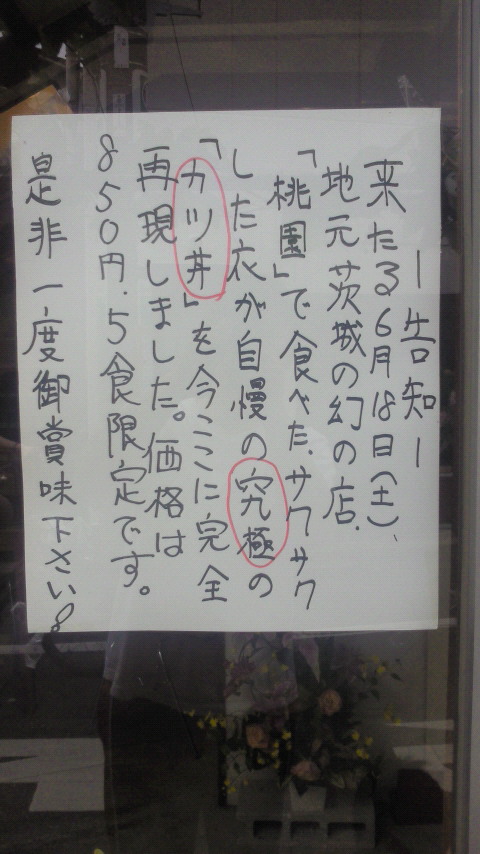 ー告知ー
来たる、6月18日(土)、
地元茨城の幻の店、
「桃園」で食べた、サクサク
した衣が自慢の究極の
「カツ丼」を今ここに完全
再現しました。価格は
850円、5食限定です。
是非一度御賞味下さい!